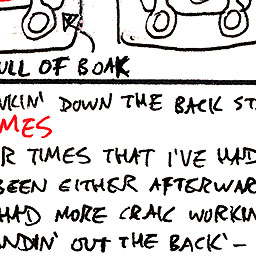 ULL OF BOAK
NKIN' DOWN THE BACK ST
MES
R TIMES THAT I'VE HAD
BEEN EITHER AFTERWAR
HAD MORE CRAIC WORKIN
NDIN' OUT THE BACK' –